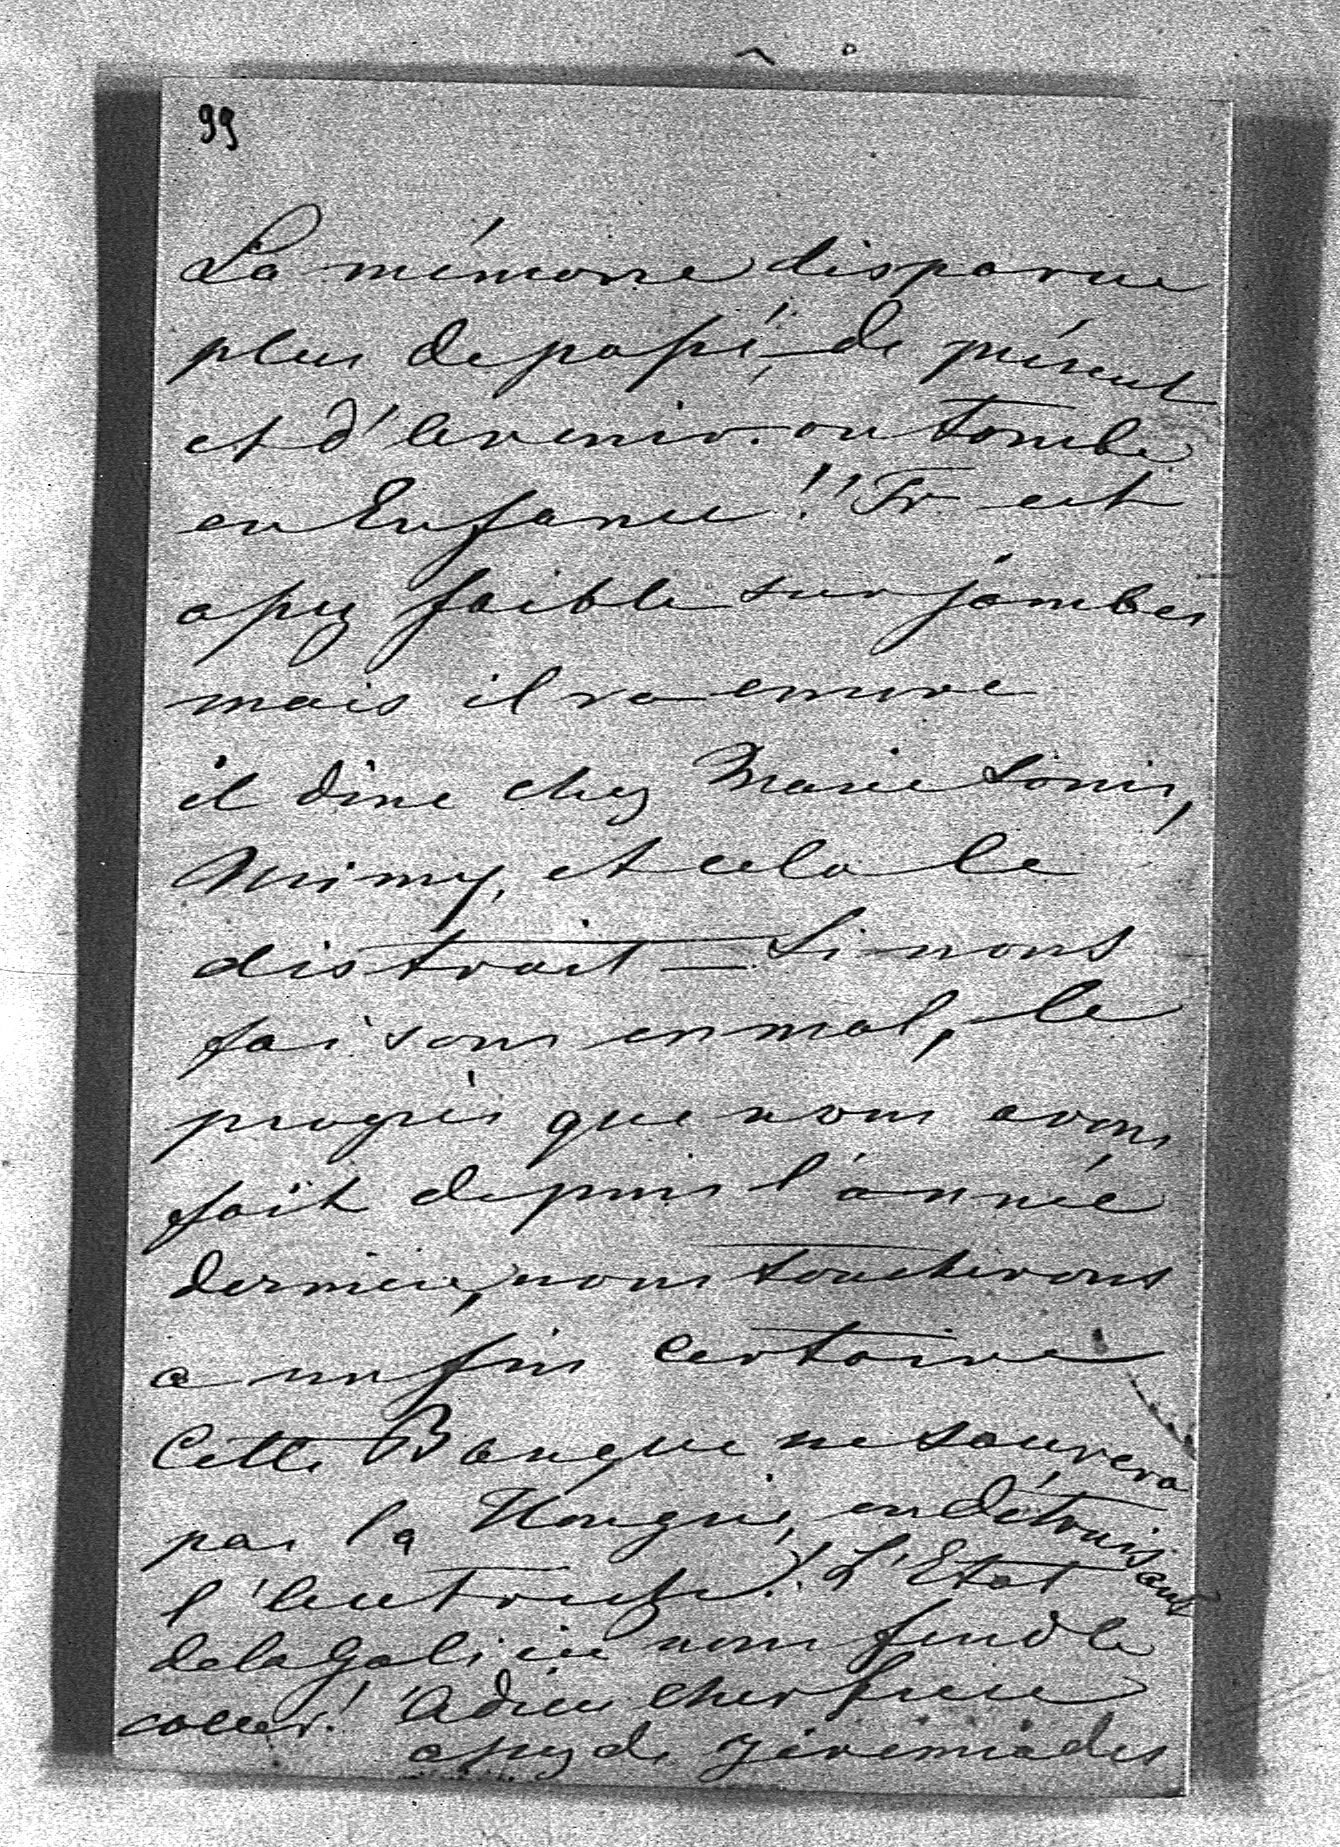 99
La mémoire disparue
plus de passé, de présent
et d'avenir. on tombe
en Enfance!! Fr est
assez faible sur jambes
mais il va encore
il dine chez Marie Louis,
Mimy, et cela le
distrait — Si nous
faisons en mal, le
progrès que nous avons
fait depuis l'année
derniere, nous toucherons
a un fin certaine
Cette Banque ne sauvera
pas la Hongrie, en détruisant
l'Autriche! L'Etat
de la Galicie nous fend le
coeur! Adieu cher frere
assez de jérémiades